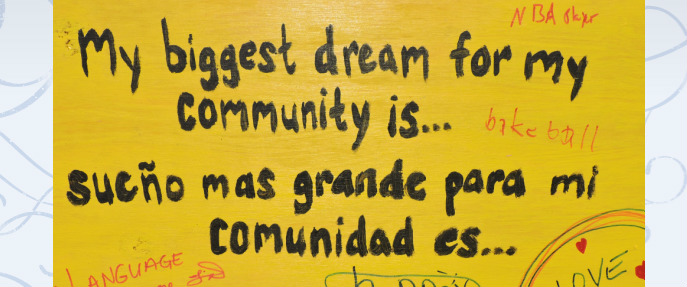 NBA
My biggest dream for my
community is...
sueño mas grande para mi
comunidad es...
LANGUAGE
LOVE